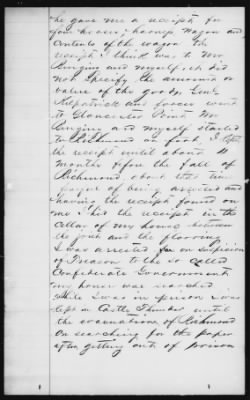 he gave me a receipt for
four horses, harness wagon and
contents of the wagon the
receipt I think was to Mr
and myself, it did
not specify the amount or
value of the goods, Genl
Kilpatrick and forces went
to Gloucester Point Mr
and myself started
to Richmond on foot. I kept
the receipt until about
months before the fall of
Richmond about this time
of being arrested and
having the receipt found on
me I hid the receipt in the
cellar of my house between
the and the flooring
I was arrested on suspicion
of Treason to the so called
Confederate Government
my house was searched
while I was in prison I was
kept in Castle Thunder until
the evacuation of Richmond
On searching for the paper
after getting out of prison